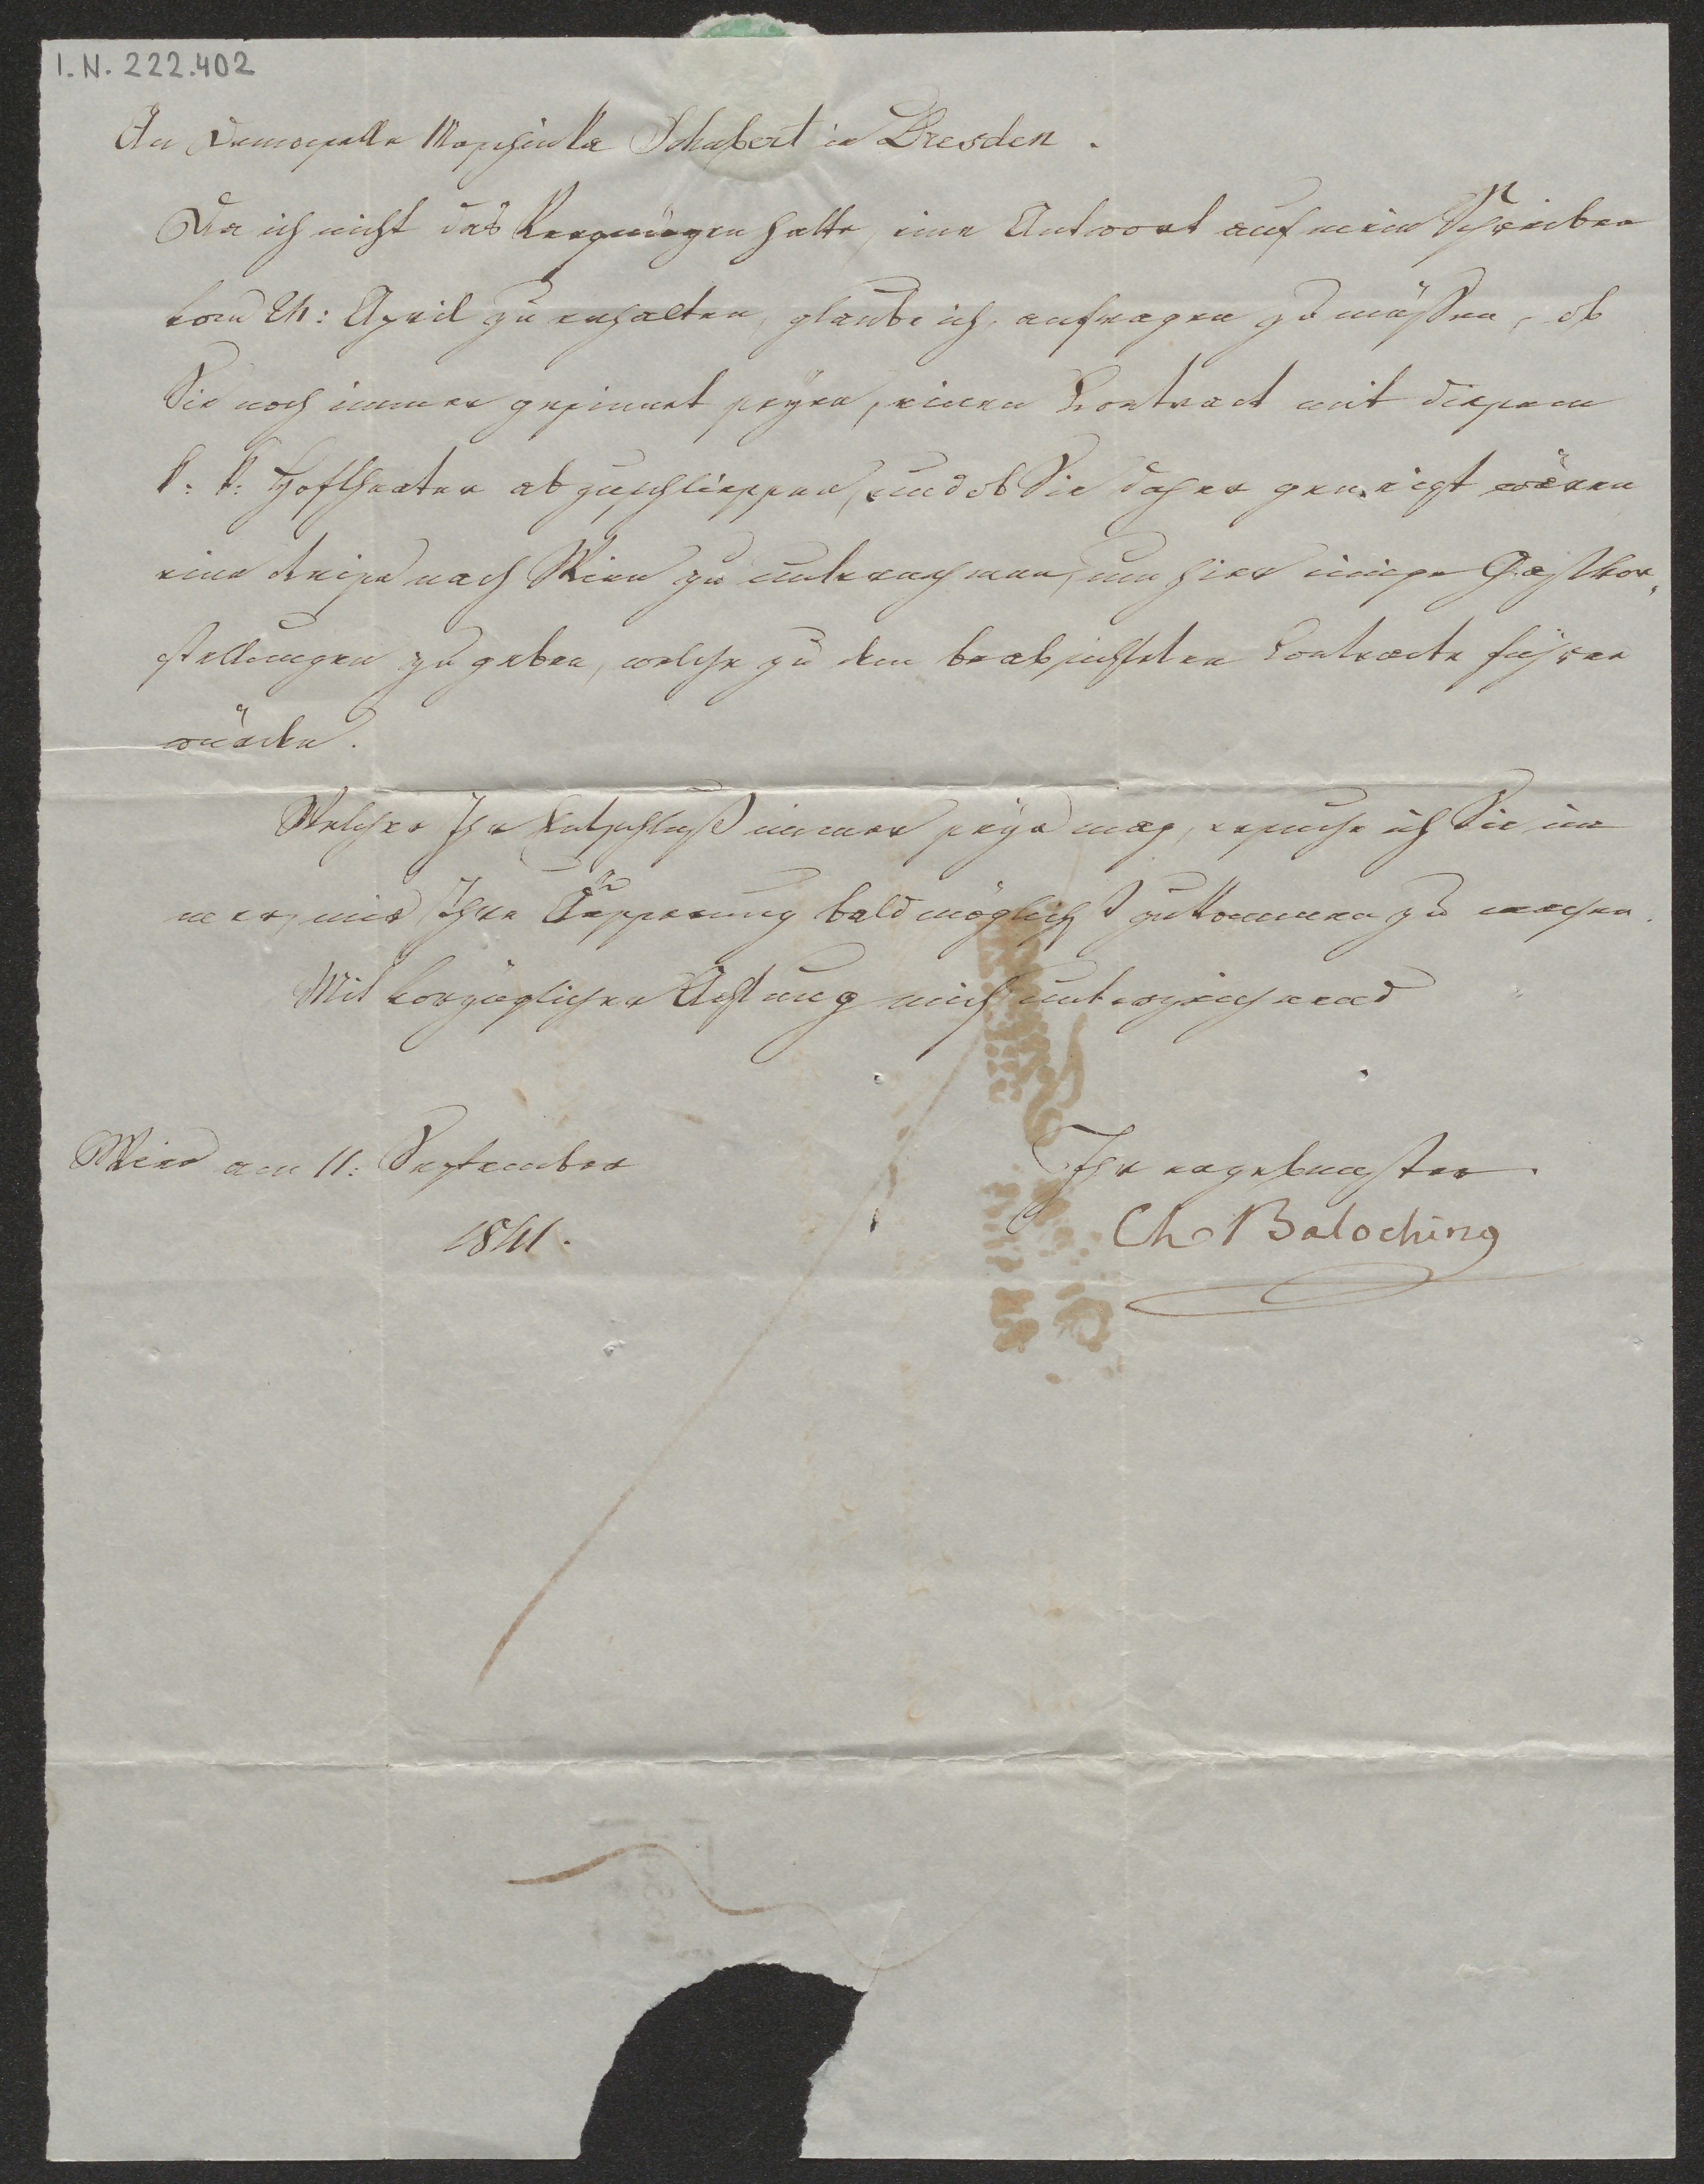 I.N. 222.402
An Demoiselle Maschinka Schubert in Dresden.
Da ich nicht das Vergnügen hatte, eine Antwort auf mein Schreiben
vom April zu erhalten, glaube ich, anfragen zu müßen, ob
Sie noch immer gesinnt seyen, einen Contract mit diesem
k: k: Hoftheater abzuschliessen, und ob Sie daher geneigt wären
eine Reise nach Wien zu unternehmen, um hier einige Gastvor-
stellungen zu geben, welche zu dem beabsichteten Contracte führen
würden.
Welcher Ihr Entschluß immer seyn mag, ersuche ich Sie im-
mer, mir Ihre Äusserung baldmöglichst zukommen zu machen.
Mit vorzüglicher Achtung mich unterzeichnend
Wien am 11: September
1841.
Ihr ergebenster
Ch Balochino